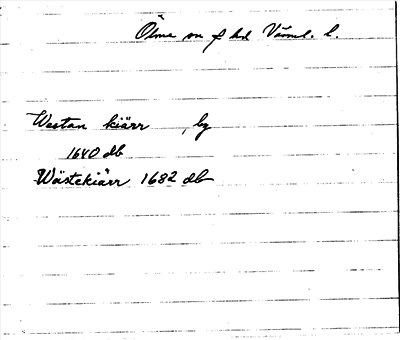 Ölme sn f hd Värml. l.
Westan kiärr , by
1640 db
Wästekiärr 1682 db